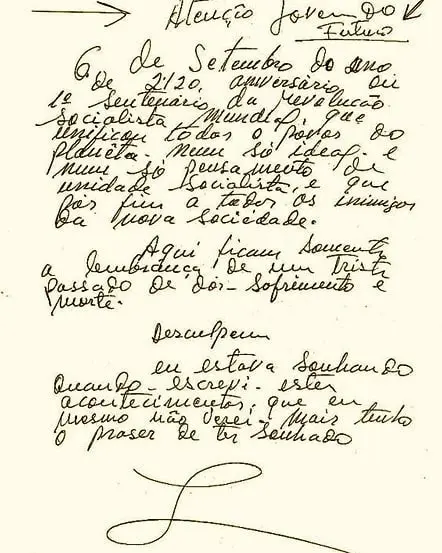 Atenção Jovem Do
Futuro
6 de Setembro do ano
de 2120, aniversário ou
1º Sentenário da revolução
Socialista Mundial, que
unificou todos o povos do
planêta. num só ideal e
num só pensamento de
unidade socialista, e que
pôs fim a todos os inimigos
da nova sociedade.
Aqui ficam somente
a lembrança de um Triste
passado de dôr - Sofrimento e
morte.
Desculpem
eu estava Sonhando
Quando - escrevi - estes
acontecimentos, que eu
mesmo não verei mais tenho
o praser de ter Sonhado